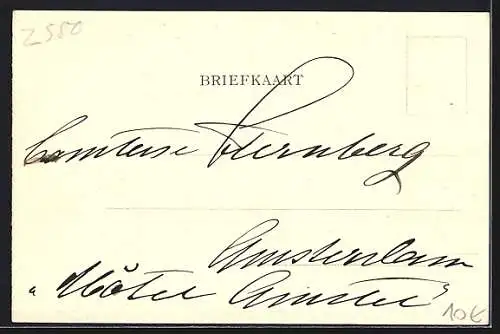 2550
BRIEFKAART
Comtesse Sternberg
Amsterdam
"Hôtel Amstel"
10€